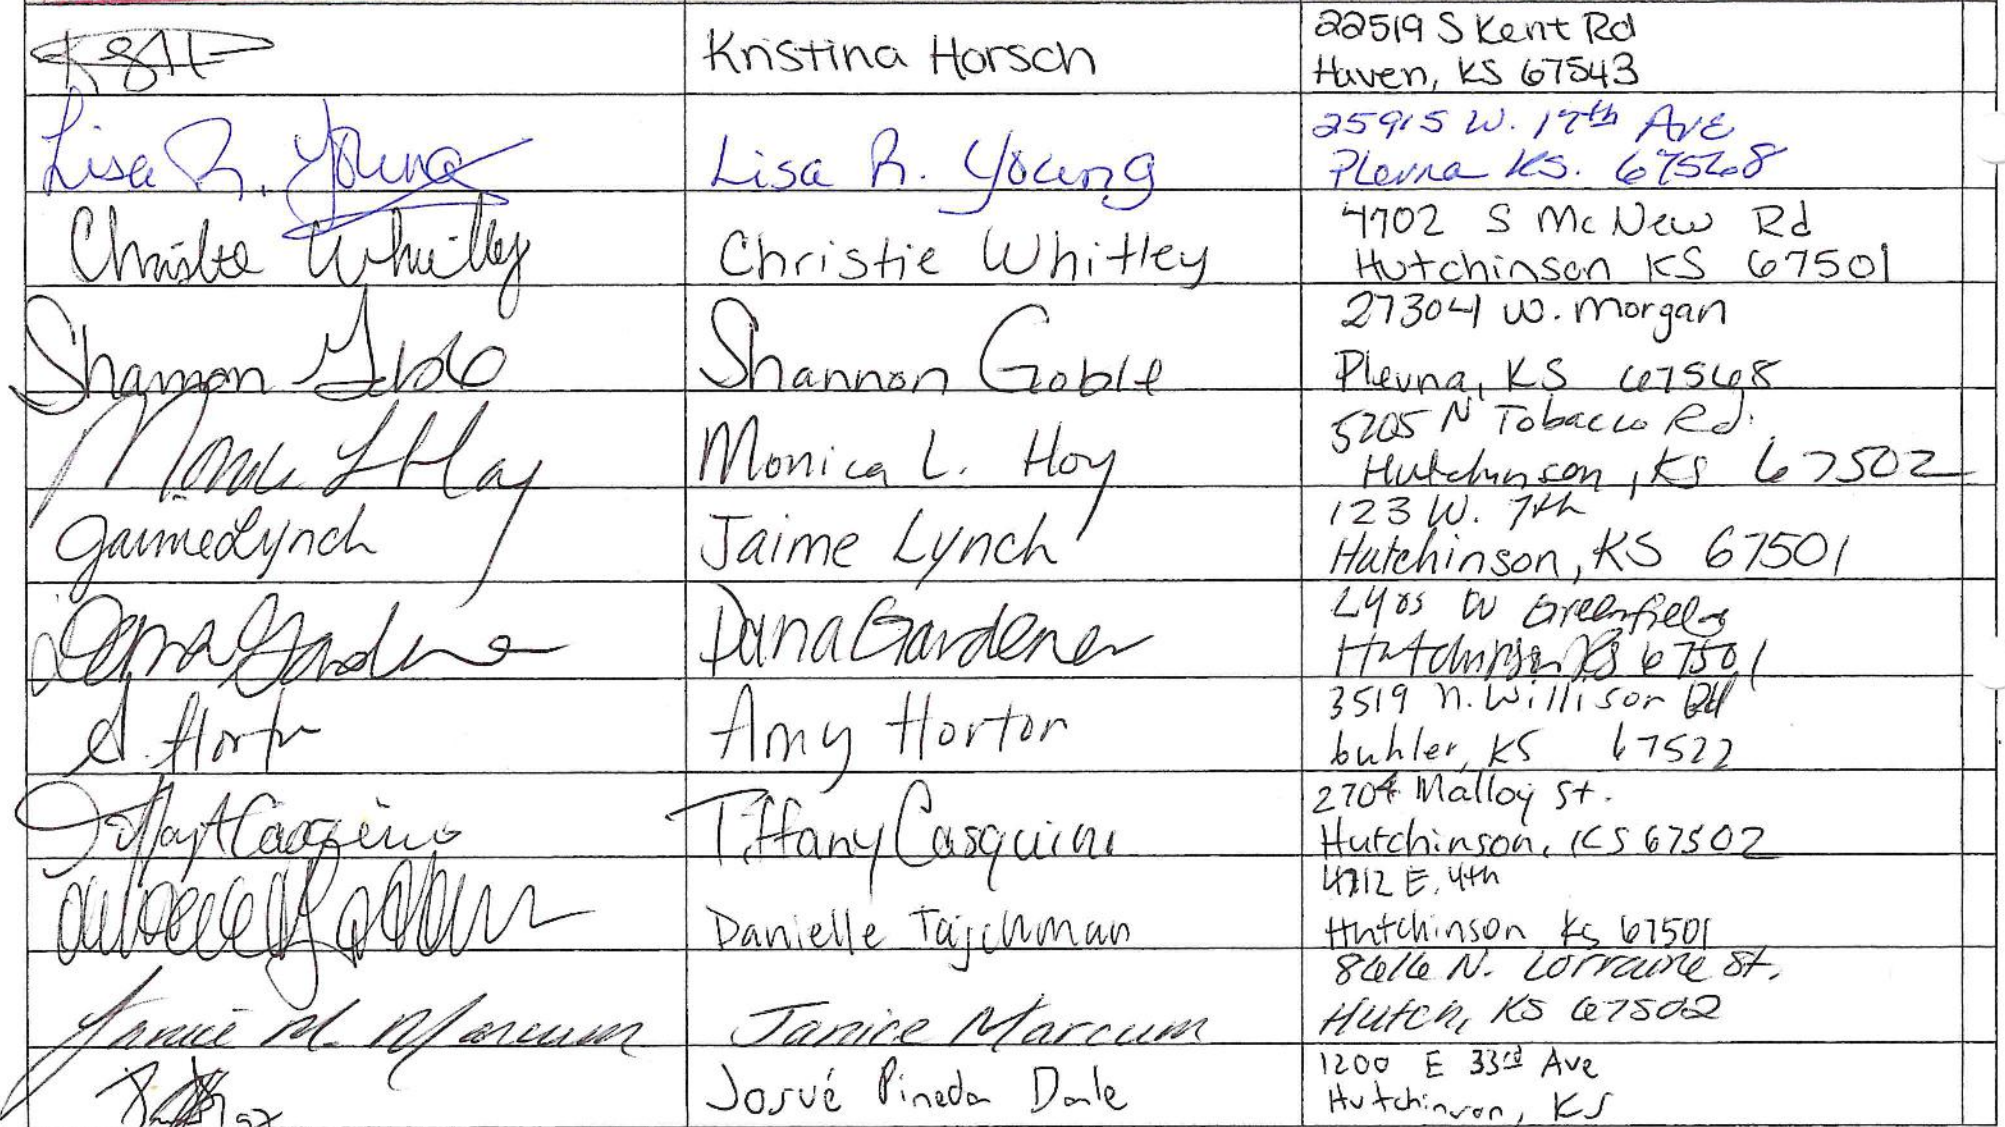 Kristina Horsch
22519 S Kent Rd
Haven, KS 67543
Lisa R. Young Lisa R. Young
25915 W. 17th Ave
Plevna KS. 67568
Christie Whitley Christie Whitley
4702 S McNew Rd
Hutchinson KS 67501
Shannon Goble Shannon Goble
27304 W. Morgan
Plevna, KS 67568
Monica L Hoy Monica L. Hoy
5205 N Tobacco Rd.
Hutchinson, KS 67502
Jaime Lynch Jaime Lynch
123 W. 7th
Hutchinson, KS 67501
Dana Gardener Dana Gardener
W Greenfield
Hutchinson KS 67501
A. Horton Amy Horton
3519 N. Willison Rd
buhler, KS 67522
Tiffany Casquino
2704 Malloy St.
Hutchinson, KS 67502
Danielle Tajchman
E. 4th
Hutchinson KS 67501
Janice M. Marcum Janice Marcum
8616 N. Lorraine St.
Hutch, KS 67502
Josué Pineda Dale
1200 E 33rd Ave
Hutchinson, KS